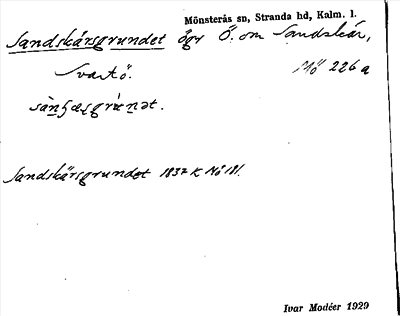 Mönsterås sn, Stranda hd, Kalm. l.
Sandskärsgrundet ögr Ö. om Sandskär,
Svartö. Mö 226a
Sandskärsgrundet 1837 K Mö 181.
Ivar Modéer 1929